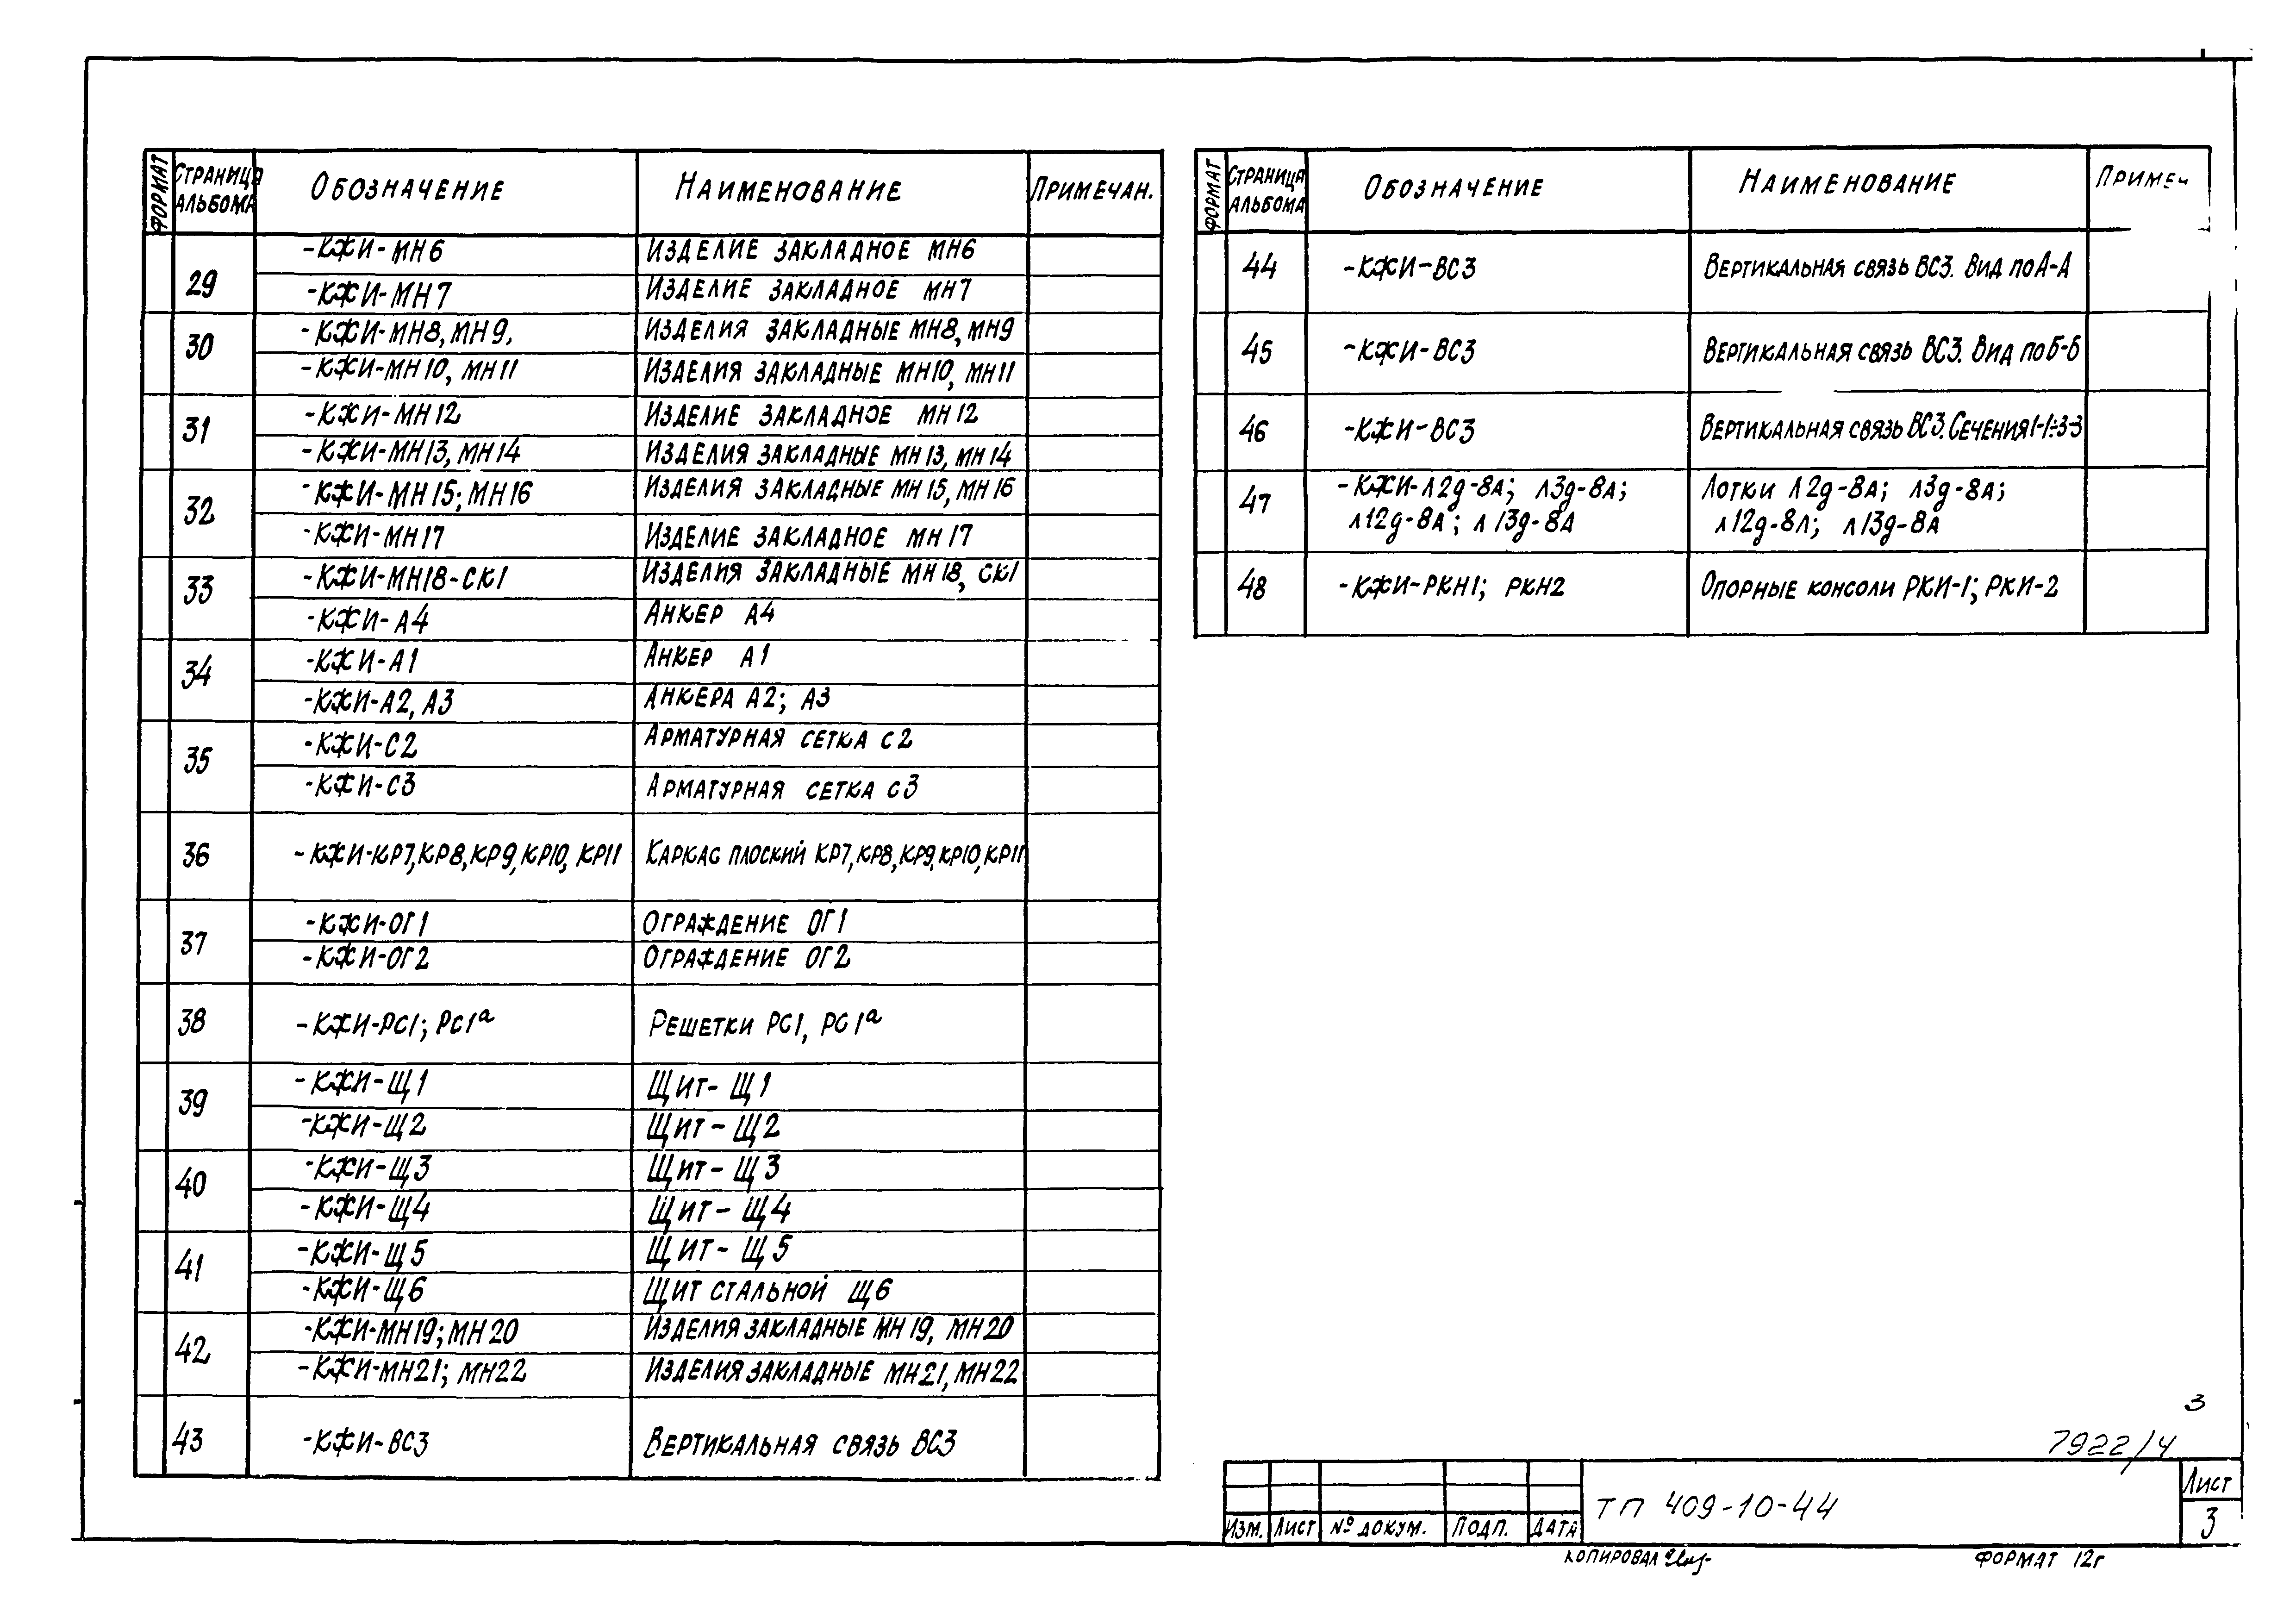 ФОРМАТ СТРАНИЦА АЛЬБОМА ОБОЗНАЧЕНИЕ НАИМЕНОВАНИЕ ПРИМЕЧАН.
29 -КЖИ-МН6 ИЗДЕЛИЕ ЗАКЛАДНОЕ МН6
-КЖИ-МН7 ИЗДЕЛИЕ ЗАКЛАДНОЕ МН7
30 -КЖИ-МН8, МН9, ИЗДЕЛИЯ ЗАКЛАДНЫЕ МН8, МН9
-КЖИ-МН10, МН11 ИЗДЕЛИЯ ЗАКЛАДНЫЕ МН10, МН11
31 -КЖИ-МН12 ИЗДЕЛИЕ ЗАКЛАДНОЕ МН12
-КЖИ-МН13, МН14 ИЗДЕЛИЯ ЗАКЛАДНЫЕ МН13, МН14
32 -КЖИ-МН15; МН16 ИЗДЕЛИЯ ЗАКЛАДНЫЕ МН15, МН16
-КЖИ-МН17 ИЗДЕЛИЕ ЗАКЛАДНОЕ МН17
33 -КЖИ-МН18-СК1 ИЗДЕЛИЯ ЗАКЛАДНЫЕ МН18, СК1
-КЖИ-А4 АНКЕР А4
34 -КЖИ-А1 АНКЕР А1
-КЖИ-А2, А3 АНКЕРА А2; А3
35 -КЖИ-С2 АРМАТУРНАЯ СЕТКА С2
-КЖИ-С3 АРМАТУРНАЯ СЕТКА С3
36 -КЖИ-КР7, КР8, КР9, КР10, КР11 КАРКАС ПЛОСКИЙ КР7, КР8, КР9, КР10, КР11
37 -КЖИ-ОГ1 ОГРАЖДЕНИЕ ОГ1
-КЖИ-ОГ2 ОГРАЖДЕНИЕ ОГ2
38 -КЖИ-РС1; РС1ª РЕШЕТКИ РС1, РС1ª
39 -КЖИ-Щ1 ЩИТ- Щ1
-КЖИ-Щ2 ЩИТ- Щ2
40 -КЖИ-Щ3 ЩИТ- Щ3
-КЖИ-Щ4 ЩИТ- Щ4
41 -КЖИ-Щ5 ЩИТ- Щ5
-КЖИ-Щ6 ЩИТ СТАЛЬНОЙ Щ6
42 -КЖИ-МН19; МН20 ИЗДЕЛИЯ ЗАКЛАДНЫЕ МН19, МН20
-КЖИ-МН21; МН22 ИЗДЕЛИЯ ЗАКЛАДНЫЕ МН21, МН22
43 -КЖИ-ВС3 ВЕРТИКАЛЬНАЯ СВЯЗЬ ВС3
ФОРМАТ СТРАНИЦА АЛЬБОМА ОБОЗНАЧЕНИЕ НАИМЕНОВАНИЕ ПРИМЕЧ
44 -КЖИ-ВС3 ВЕРТИКАЛЬНАЯ СВЯЗЬ ВС3. ВИД ПО А-А
45 -КЖИ-ВС3 ВЕРТИКАЛЬНАЯ СВЯЗЬ ВС3. ВИД ПО Б-Б
46 -КЖИ-ВС3 ВЕРТИКАЛЬНАЯ СВЯЗЬ ВС3. СЕЧЕНИЯ 1-1÷3-3
47 -КЖИ-Л2д-8А; Л3д-8А; ЛОТКИ Л2д-8А; Л3д-8А;
Л12д-8А; Л13д-8А Л12д-8А; Л13д-8А
48 -КЖИ-РКН1; РКН2 ОПОРНЫЕ КОНСОЛИ РКИ-1; РКИ-2
3
7922/4
ТП 409-10-44
ЛИСТ
3
ИЗМ. ЛИСТ № ДОКУМ. ПОДП. ДАТА
КОПИРОВАЛ ФОРМАТ 12г